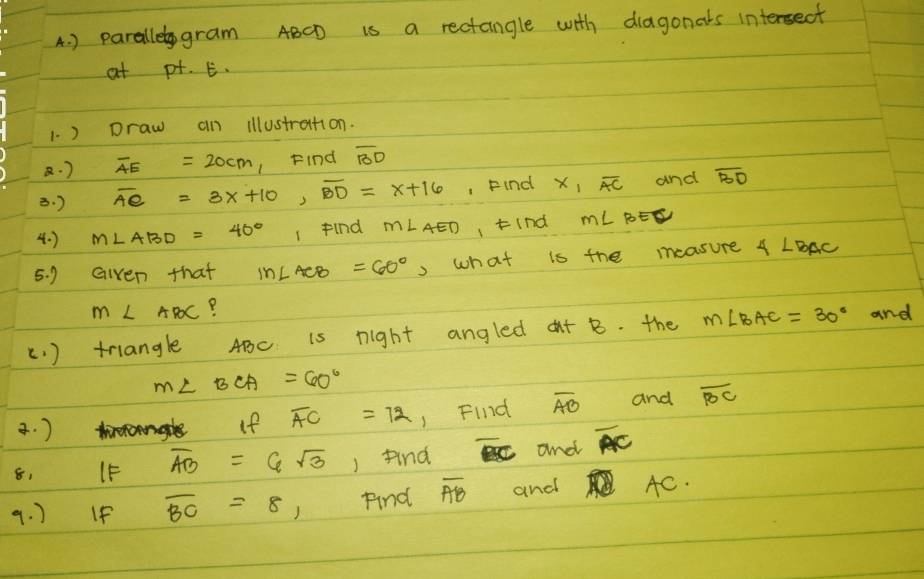 A.) Parallelogram ABCD is a rectangle with diagonals intersect
at pt. E.
1.) Draw an illustration.
2.) AE = 20cm, Find BD
3.) AC = 3x+10, BD = x+16, Find x, AC and BD
4.) m∠ABD = 40°, Find m∠AED, Find m∠BEC
5.) Given that m∠ACB = 60°, what is the measure & ∠BAC
m∠ABC?
triangle ABC is right angled at B. the m∠BAC = 30° and
m∠ BCA = 60°
7.) if AC = 12, Find AB and BC
8. IF AB = 6√3, Find BC and AC
9.) IF BC = 8, Find AB and AC.